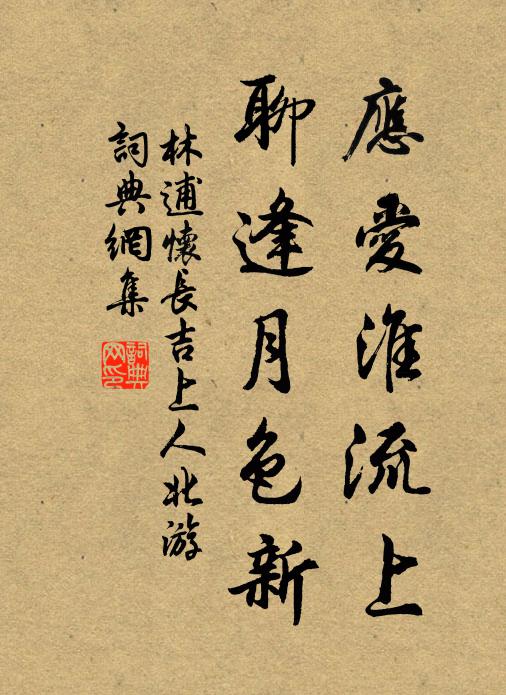 應愛淮流上
聊逢月色新
林逋懷長吉上人北游
詞典網集
詞典網印